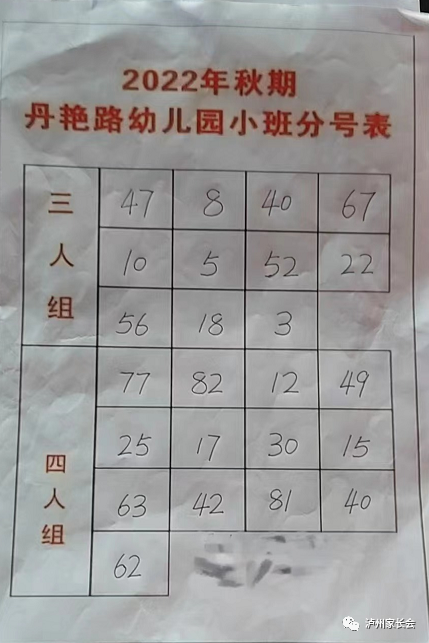 2022年秋期
丹艳路幼儿园小班分号表
三人组
47 8 40 67
10 5 52 22
56 18 3
四人组
77 82 12 49
25 17 30 15
63 42 81 40
62
泸州家长会